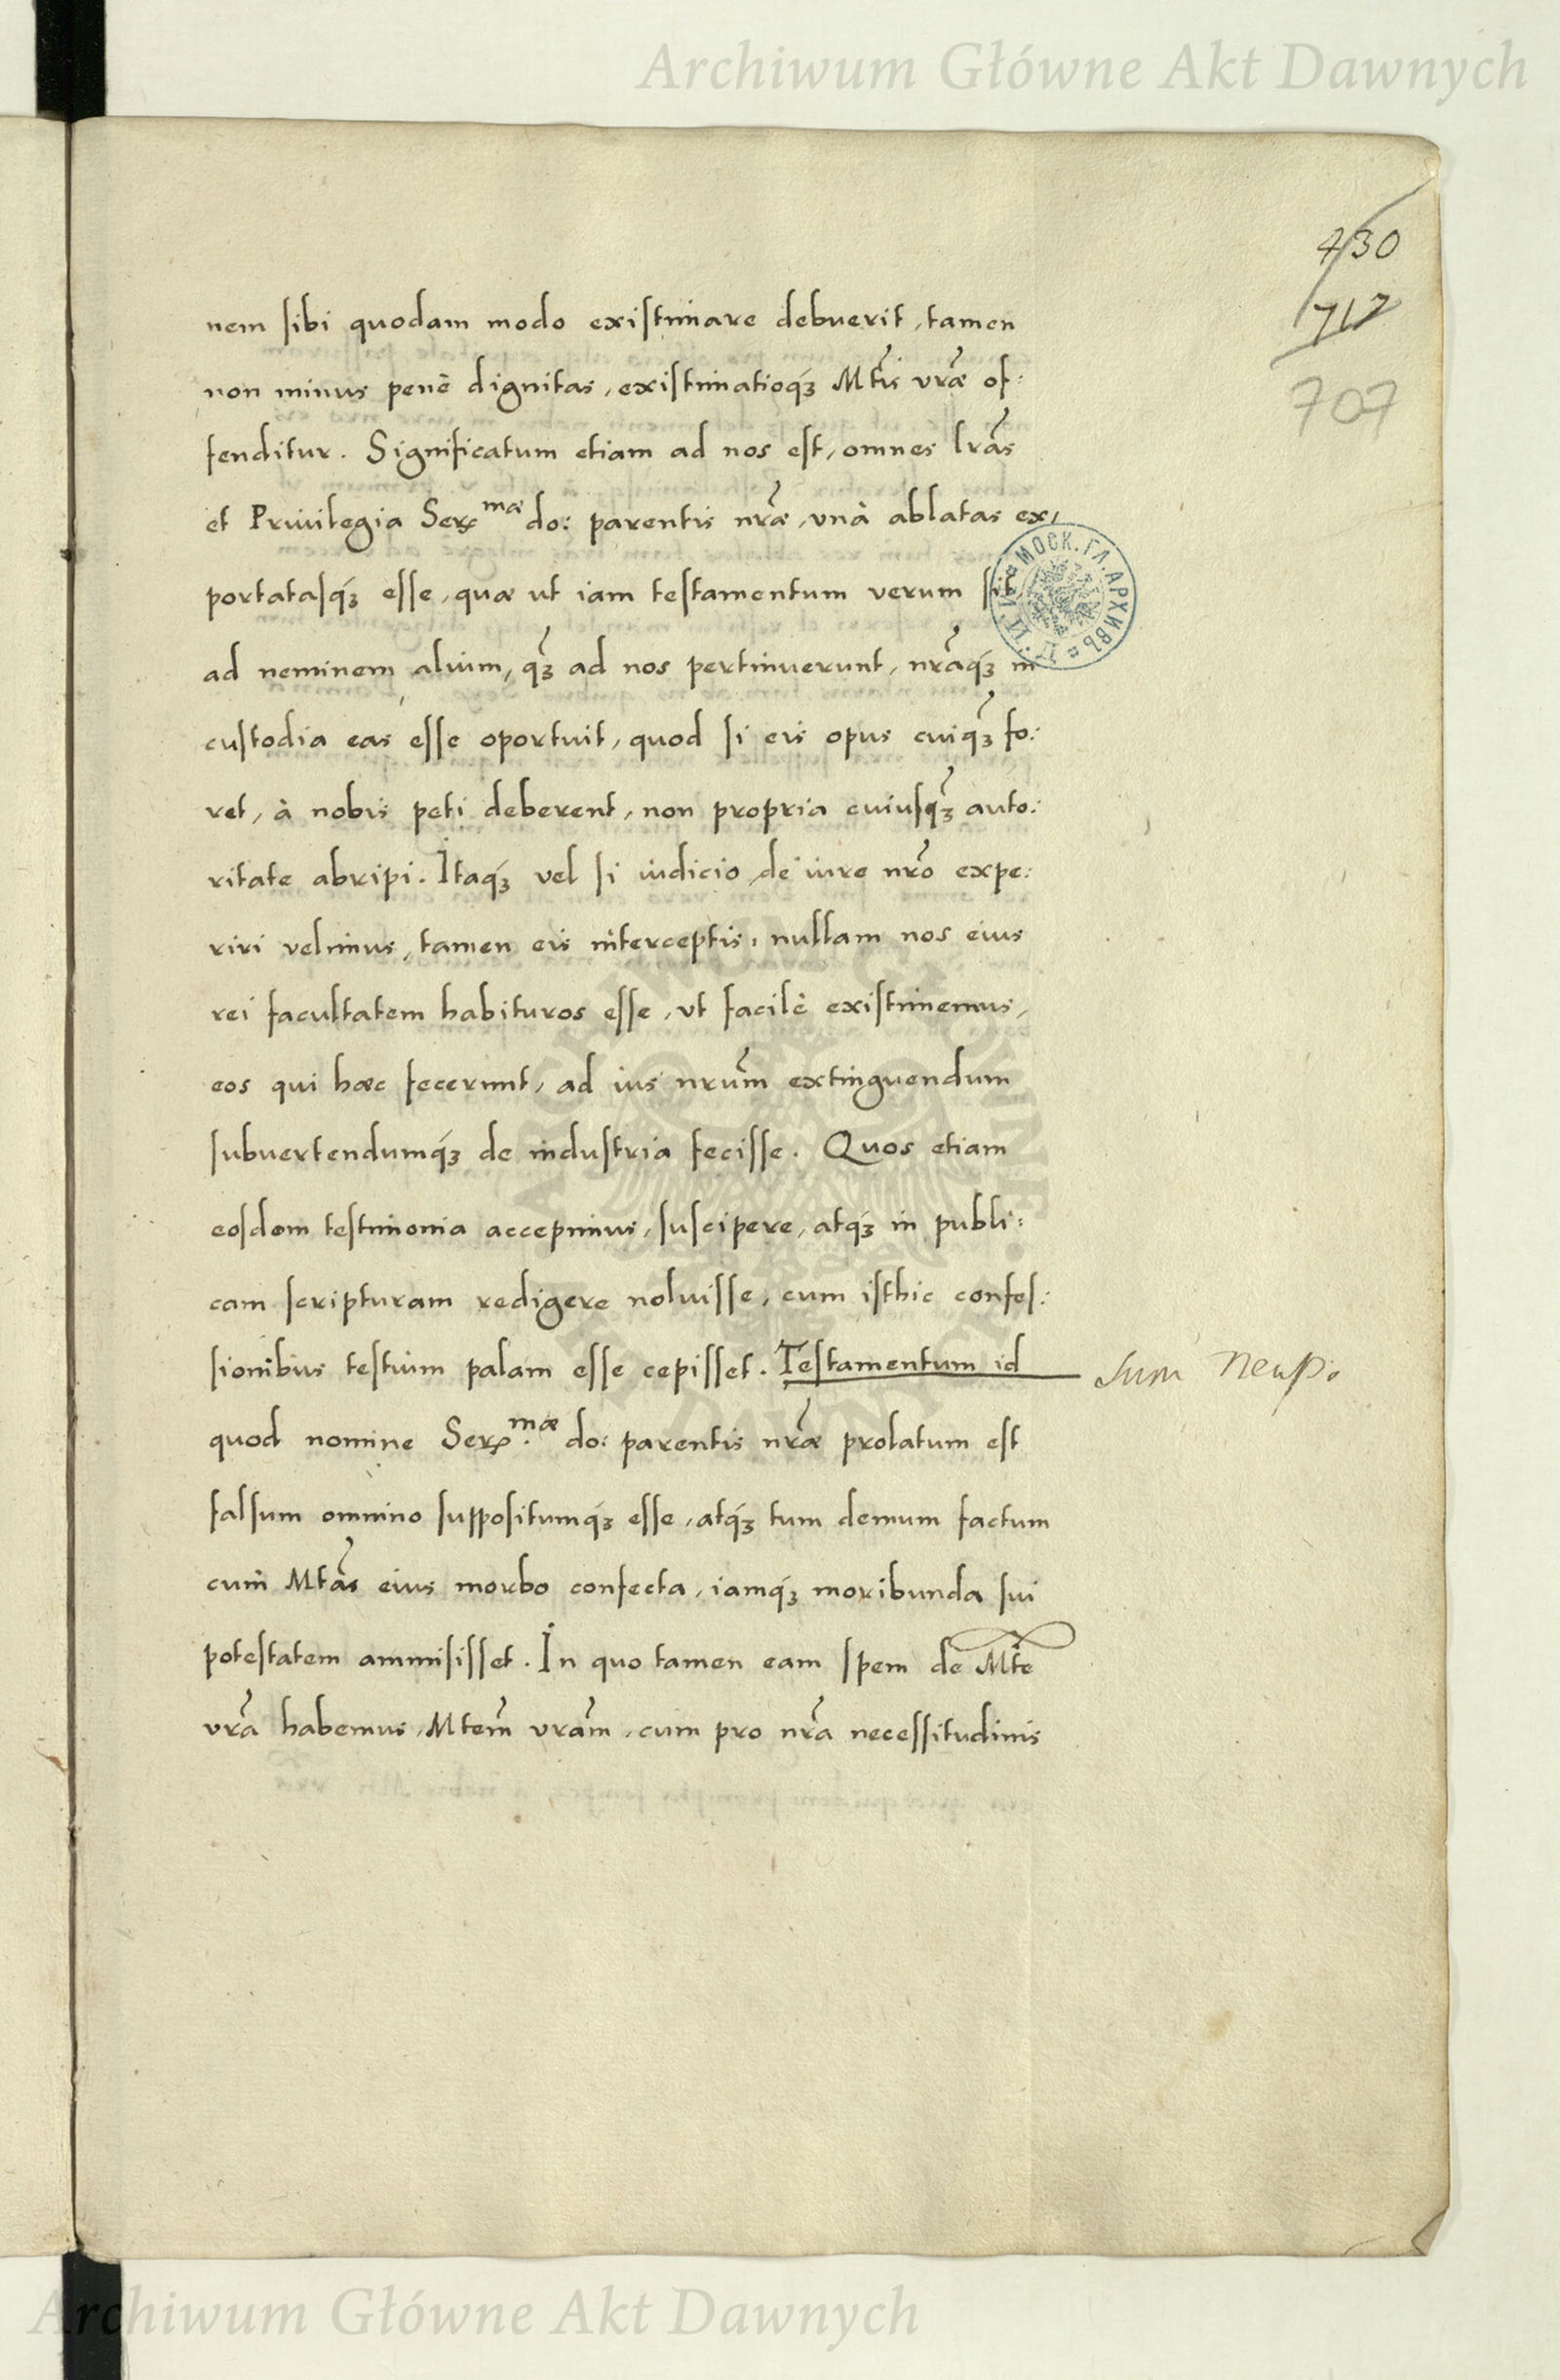 Archiwum Główne Akt Dawnych
430
717
707
nem sibi quodam modo existimare debuerit, tamen
non minus penè dignitas, existimatioq́ꝫ Mtis vræ of:
fenditur. Significatum etiam ad nos est, omnes lras
et Priuilegia Ser.mæ do: parentis nræ, vnà ablatas ex,
portatasq́ꝫ esse, quæ ut iam testamentum verum sit
ad neminem alium, qꝫ ad nos pertinuerunt, nraq́ꝫ in
custodia eas esse oportuit, quod si eis opus cuiqꝫ fo:
ret, à nobis peti deberent, non propria cuiusqꝫ auto:
ritate abripi. Itaq́ꝫ vel si iudicio de iure nro expe:
riri velimus, tamen eis interceptis, nullam nos eius
rei facultatem habituros esse, vt facilè existimemus,
eos qui hæc fecerunt, ad ius nrum extinguendum
subuertendumq́ꝫ de industria fecisse. Quos etiam
eosdem testimonia accepimus, suscipere, atq́ꝫ in publi:
cam scripturam redigere noluisse, cum isthic confes:
sionibus testium palam esse cepisset. Testamentum id
Sum Neap.
quod nomine Ser.mæ do: parentis nræ prolatum est
falsum omnino suppositumq́ꝫ esse, atq́ꝫ tum demum factum
cum Mtas eius morbo confecta, iamq́ꝫ moribunda sui
potestatem ammisisset. In quo tamen eam spem de Mte
vra habemus, Mtem vram, cum pro nra necessitudinis
МОСК. ГЛ. АРХИВЪ
ARCHIWUM GŁÓWNE AKT DAWNYCH
Archiwum Główne Akt Dawnych